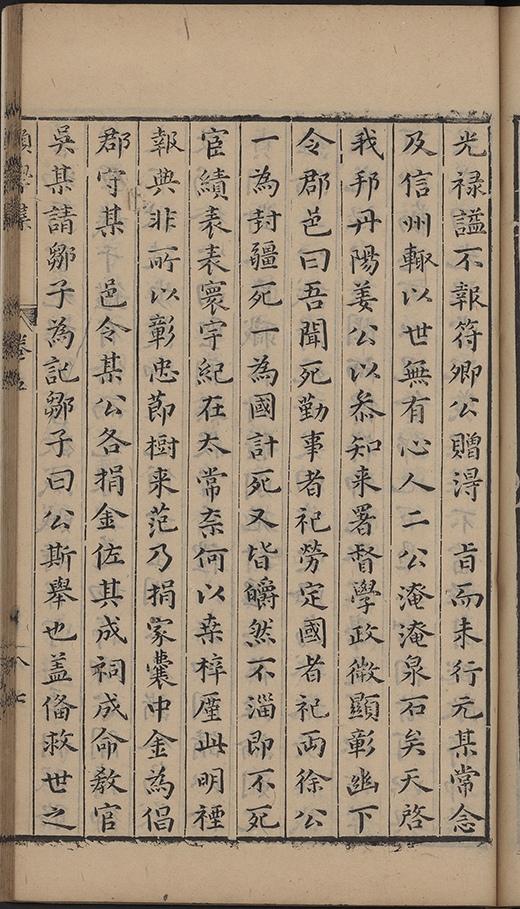 光禄謚不報符卿公贈得 㫖而未行元某常念
及信州輙以世無有心人二公淹淹泉石矣天啓
我邦丹陽姜公以叅知来署督學政微顯彰幽下
令郡邑曰吾聞死勤事者祀勞定國者祀两徐公
一為封疆死一為國計死又皆皭然不淄即不死
宦績表表寰宇紀在太常柰何以桒梓廑此明禋
報典非所以彰忠莭樹来范乃捐家囊中金為倡
郡守某邑令某公各捐金佐其成祠成命教官
吳某請鄒子為記鄒子曰公斯舉也盖俻救世之
願學集
卷五